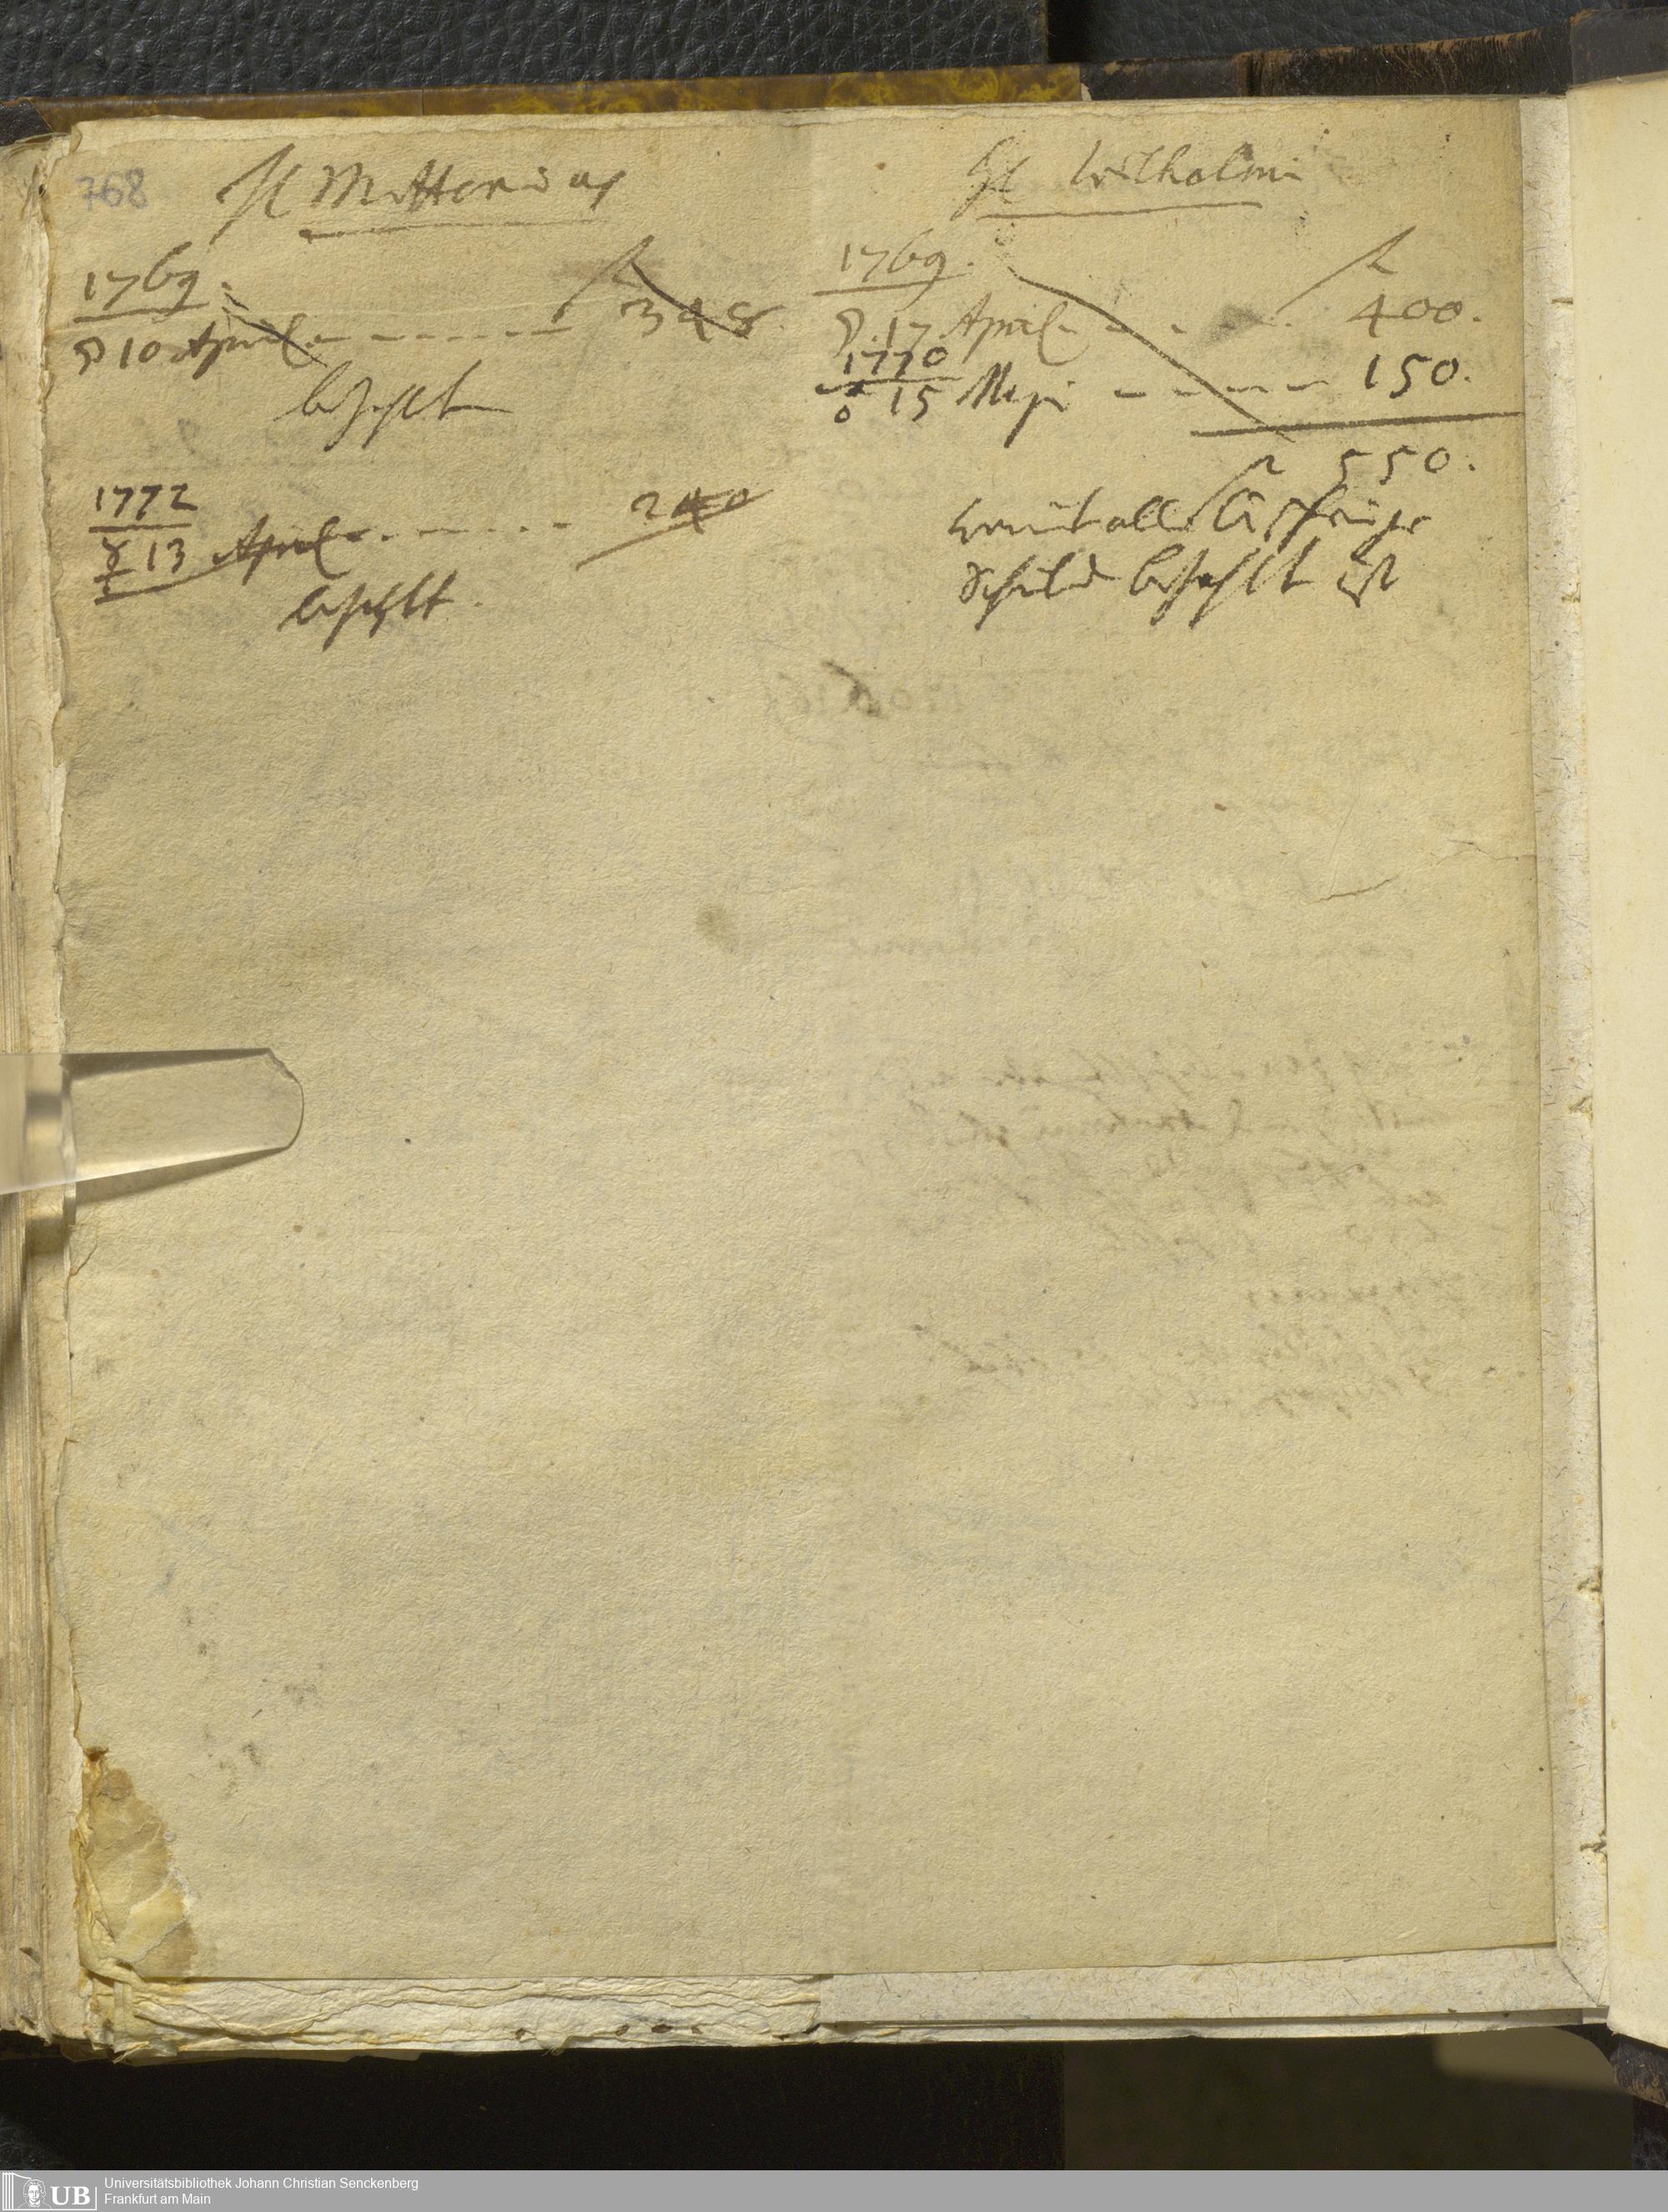 768
H Mettenius
1769.
fl
10 April - - - - - - 398
bezahlt
1772
13 April - - - - - 240
bezahlt.
H Wilhelmi
1769.
fl
17 April - - - - 400.
1770
♂ 15 Maji - - - - 150.
fl 550.
womit alle bisherige
Schuld bezahlt ist
UB
Universitätsbibliothek Johann Christian Senckenberg
Frankfurt am Main